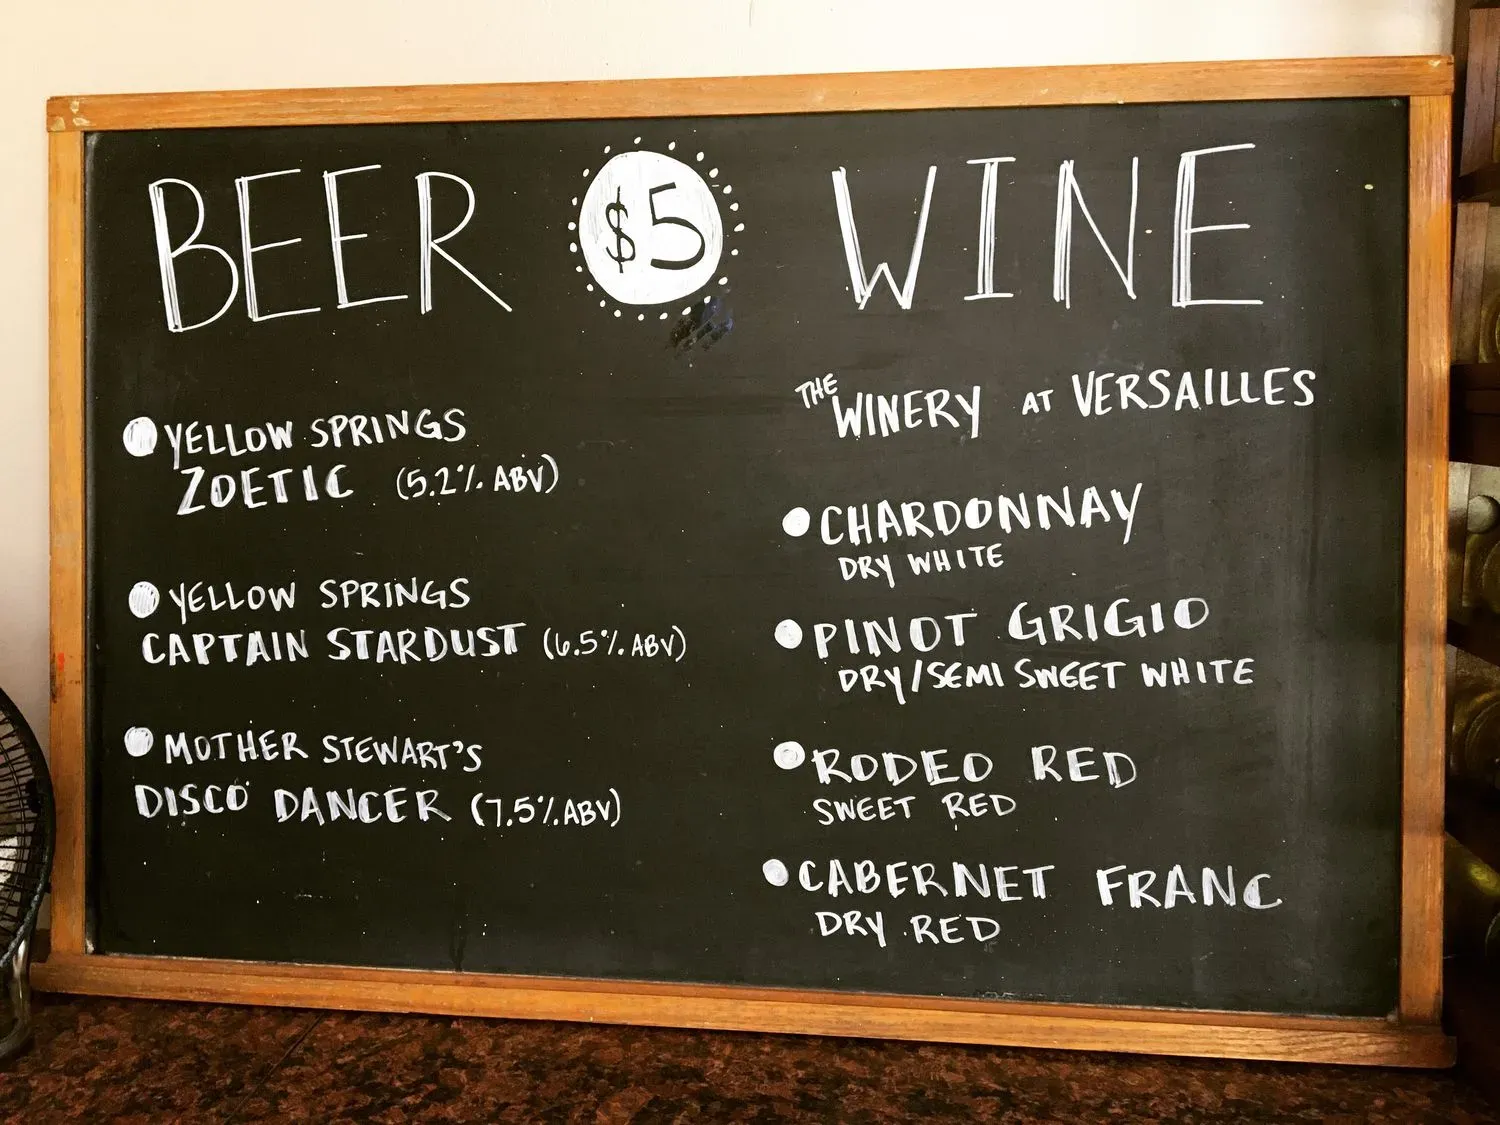 BEER $5 WINE
YELLOW SPRINGS
ZOETIC (5.2% ABV)
YELLOW SPRINGS
CAPTAIN STARDUST (6.5% ABV)
MOTHER STEWART'S
DISCO DANCER (7.5% ABV)
THE WINERY AT VERSAILLES
CHARDONNAY
DRY WHITE
PINOT GRIGIO
DRY/SEMI SWEET WHITE
RODEO RED
SWEET RED
CABERNET FRANC
DRY RED